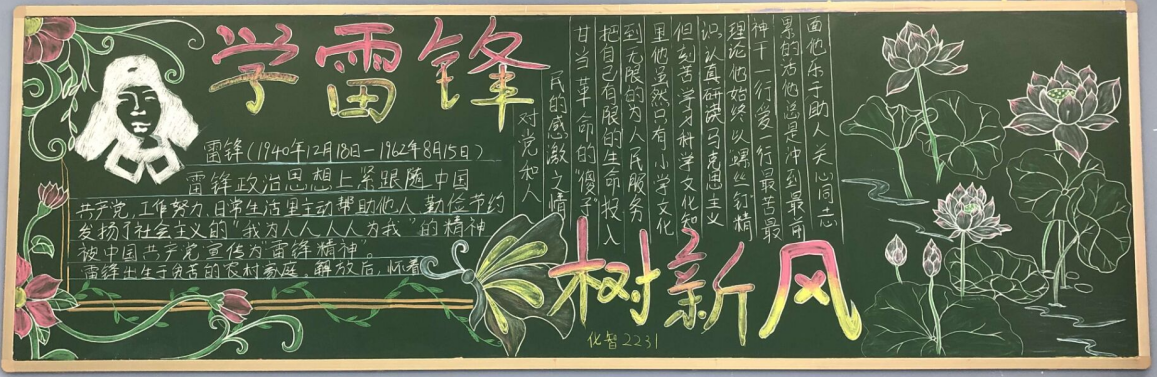 学雷锋
雷锋(1940年12月18日—1962年8月15日)
雷锋政治思想上紧跟随中国
共产党,工作努力、日常生活里主动帮助他人,勤俭节约
发扬了社会主义的“我为人人,人人为我”的精神
被中国共产党宣传为“雷锋精神”。
雷锋出生于贫苦的农村家庭,解放后,怀着
对党和人
民的感激之情
甘当革命的“傻子”
把自己有限的生命投入
到无限的为人民服务
里他虽然只有小学文化
但刻苦学习科学文化知
识认真研读马克思主义
理论他始终以“螺丝”钉精
神干一行爱一行最苦最
累的活他总是冲到最前
面他乐于助人关心同志
树新风
化智2231